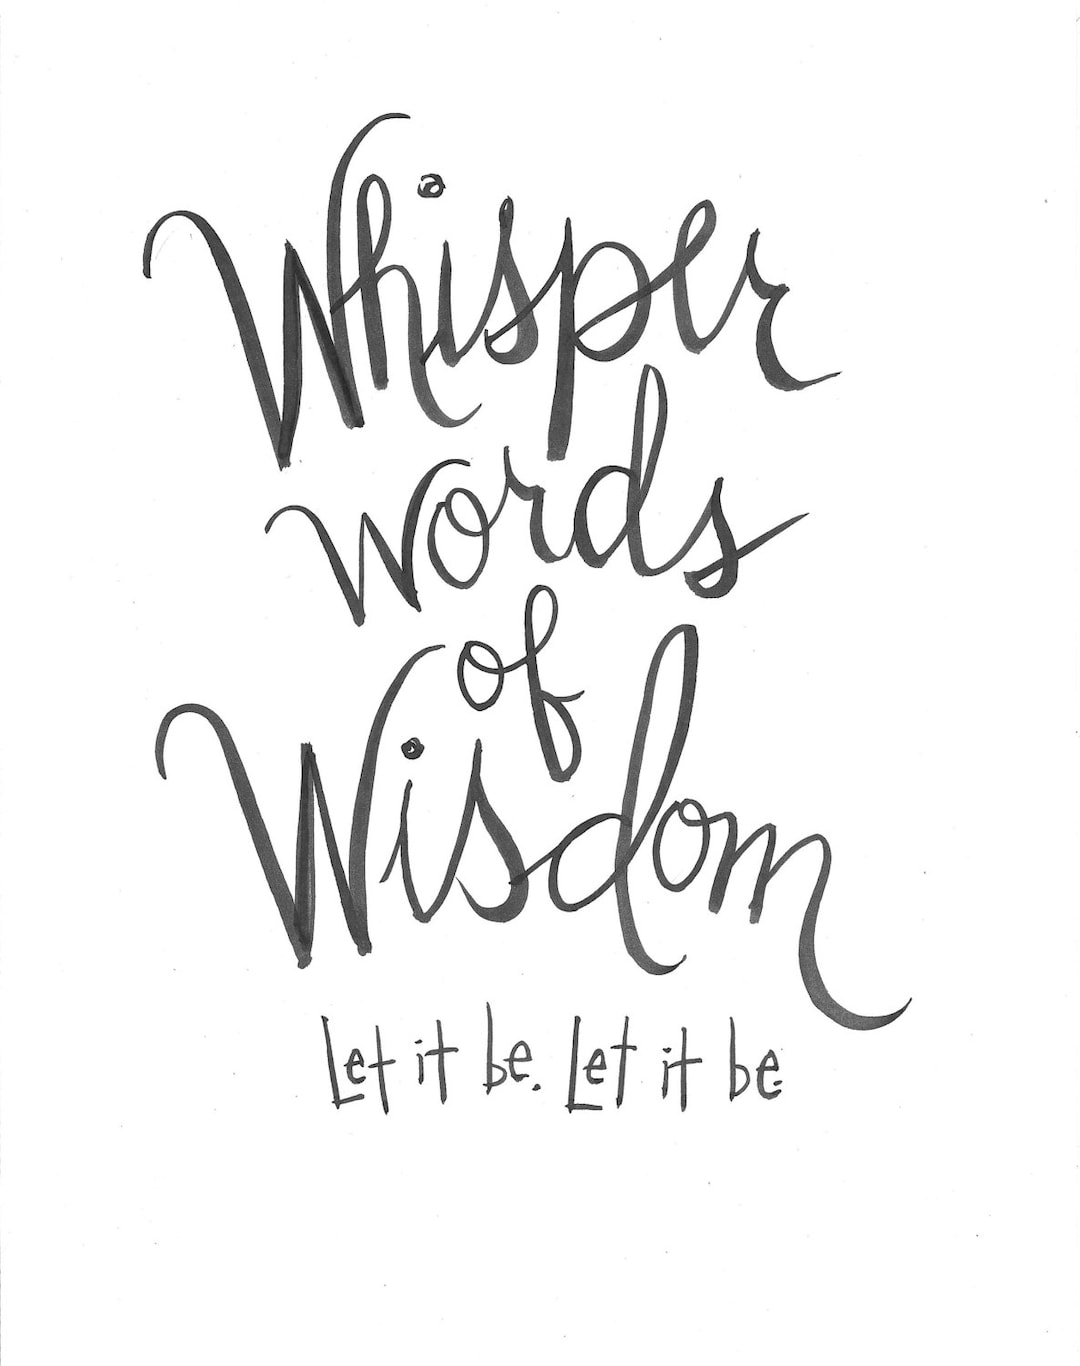 Whisper
words
of
Wisdom
Let it be. Let it be.